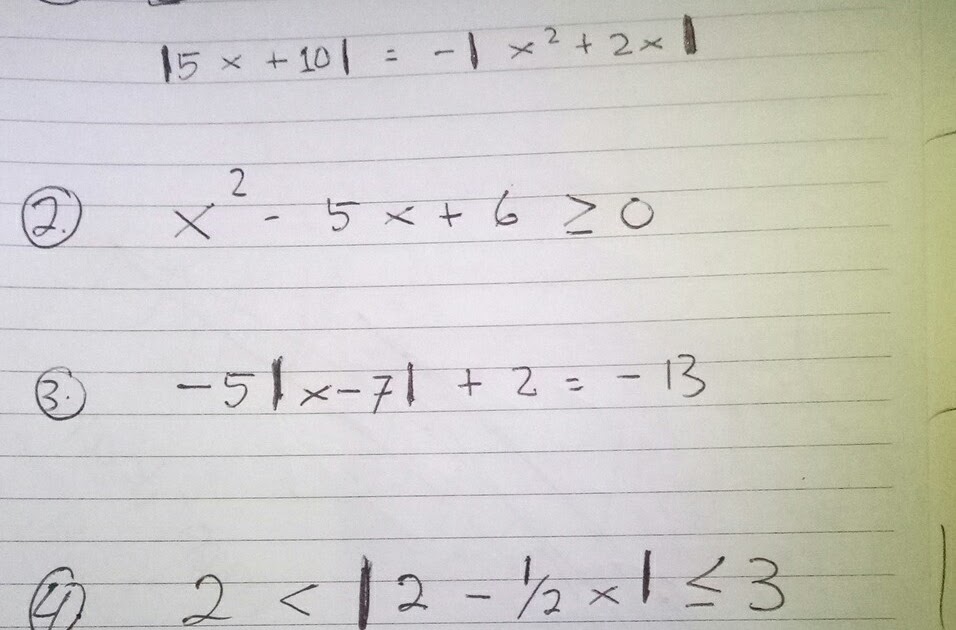 |5x + 10| = -|x² + 2x|
2. x² - 5x + 6 ≥ 0
3. -5|x - 7| + 2 = -13
4. 2 < |2 - 1/2 x| ≤ 3